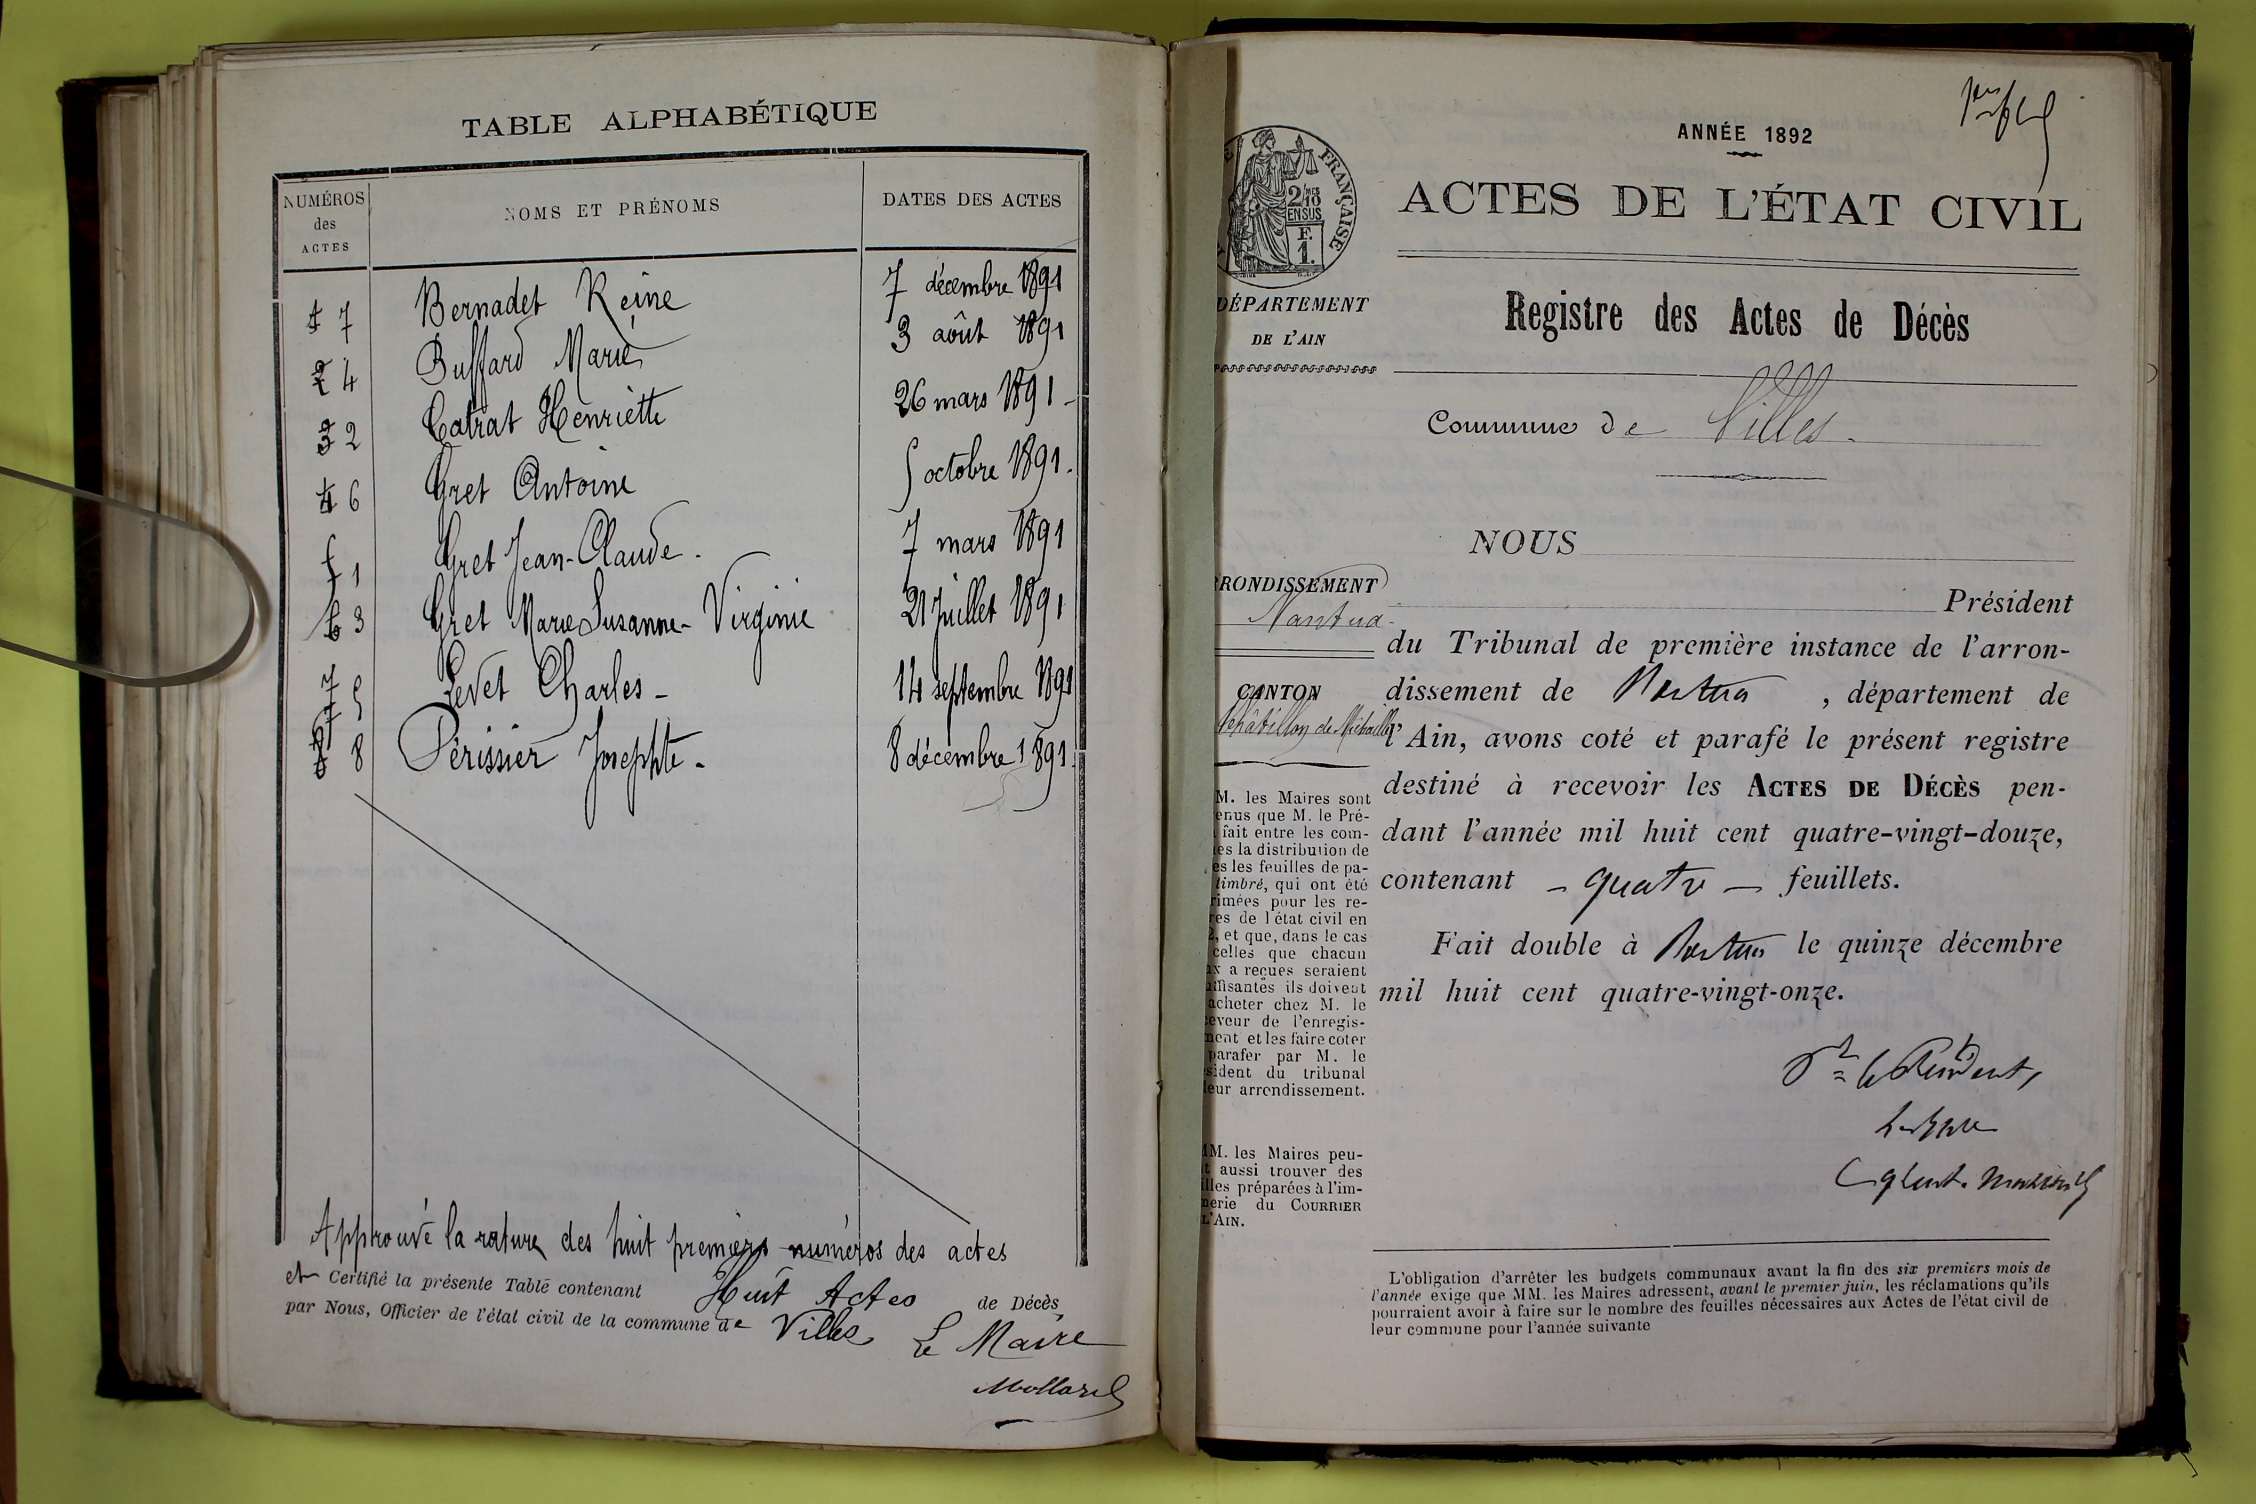 TABLE ALPHABÉTIQUE
NUMÉROS
des
ACTES
NOMS ET PRÉNOMS
DATES DES ACTES
1 7 Bernadet Reine 7 décembre 1891
2 4 Buffard Marie 3 août 1891
3 2 Catrat Henriette 26 mars 1891
4 6 Gret Antoine 5 octobre 1891.
5 1 Gret Jean-Claude. 7 mars 1891
6 3 Gret Marie Susanne-Virginie 21 Juillet 1891
7 5 Levet Charles 14 septembre 1891
8 8 Périssier Josephte. 8 décembre 1891.
Approuvé la rature des huit premiers numéros des actes
et Certifié la présente Table contenant Huit Actes de Décès
par Nous, Officier de l'état civil de la commune de Villes
Le Maire
Mollard
ANNÉE 1892
FRANÇAISE
2/10
MES
EN SUS
F.
1.
ACTES DE L'ÉTAT CIVIL
DÉPARTEMENT
DE L'AIN
Registre des Actes de Décès
Commune de Villes.
NOUS
RRONDISSEMENT
Nantua
Président
du Tribunal de première instance de l'arron-
dissement de Nantua, département de
l'Ain, avons coté et parafé le présent registre
destiné à recevoir les ACTES DE DÉCÈS pen-
dant l'année mil huit cent quatre-vingt-douze,
contenant - quatre - feuillets.
Fait double à Nantua le quinze décembre
mil huit cent quatre-vingt-onze.
CANTON
Châtillon de Michaille
M. les Maires sont
enus que M. le Pré-
fait entre les com-
es la distribution de
es les feuilles de pa-
timbré, qui ont été
rimées pour les re-
res de l'état civil en
2, et que, dans le cas
celles que chacun
ux a reçues seraient
uffisantes ils doivent
acheter chez M. le
ceveur de l'enregis-
ment et les faire coter
parafer par M. le
sident du tribunal
leur arrondissement.
MM. les Maires peu-
t aussi trouver des
illes préparées à l'im-
merie du COURRIER
L'AIN.
Pr le Président,
L'obligation d'arrêter les budgets communaux avant la fin des six premiers mois de
l'année exige que MM. les Maires adressent, avant le premier juin, les réclamations qu'ils
pourraient avoir à faire sur le nombre des feuilles nécessaires aux Actes de l'état civil de
leur commune pour l'année suivante